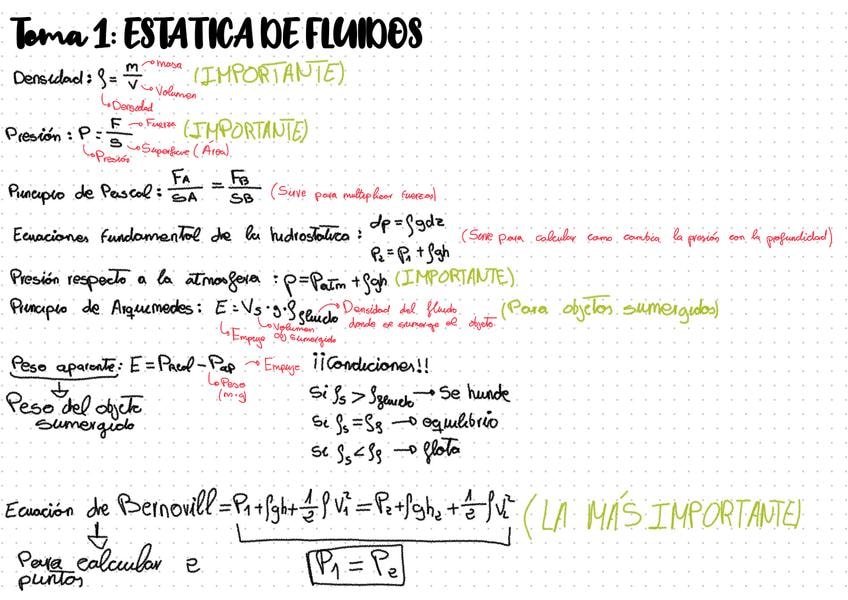 Tema 1: ESTATICA DE FLUIDOS
Densidad: ρ = m/V → masa → Volumen (IMPORTANTE)
↳ Densidad
Presión: P = F/S → Fuerza → Superficie (Área) (IMPORTANTE)
↳ Presión
Principio de Pascal: FA/SA = FB/SB (Sirve para multiplicar fuerzas)
Ecuaciones fundamental de la hidrostatica: dp = ρgdz (Sirve para calcular como cambia la presión con la profundidad)
P2 = P1 + ρgh
Presión respecto a la atmosfera: p = Patm + ρgh (IMPORTANTE)
Principio de Arquimedes: E = Vs · g · ρfluido → Densidad del fluido donde se sumerge el objeto (Para objetos sumergidos)
↳ Volumen obj sumergido
↳ Empuje
Peso aparente: E = Preal - Pap → Empuje
↳ Peso (m·g)
Peso del objeto
sumergido
¡¡Condiciones!!
Si ρs > ρfluido → Se hunde
Si ρs = ρf → equilibrio
si ρs < ρf → flota
Ecuación de Bernovill = P1 + ρgh + 1/2 ρ V1² = P2 + ρgh2 + 1/2 ρ V2² (LA MÁS IMPORTANTE)
Para calcular 2
puntos
P1 = P2